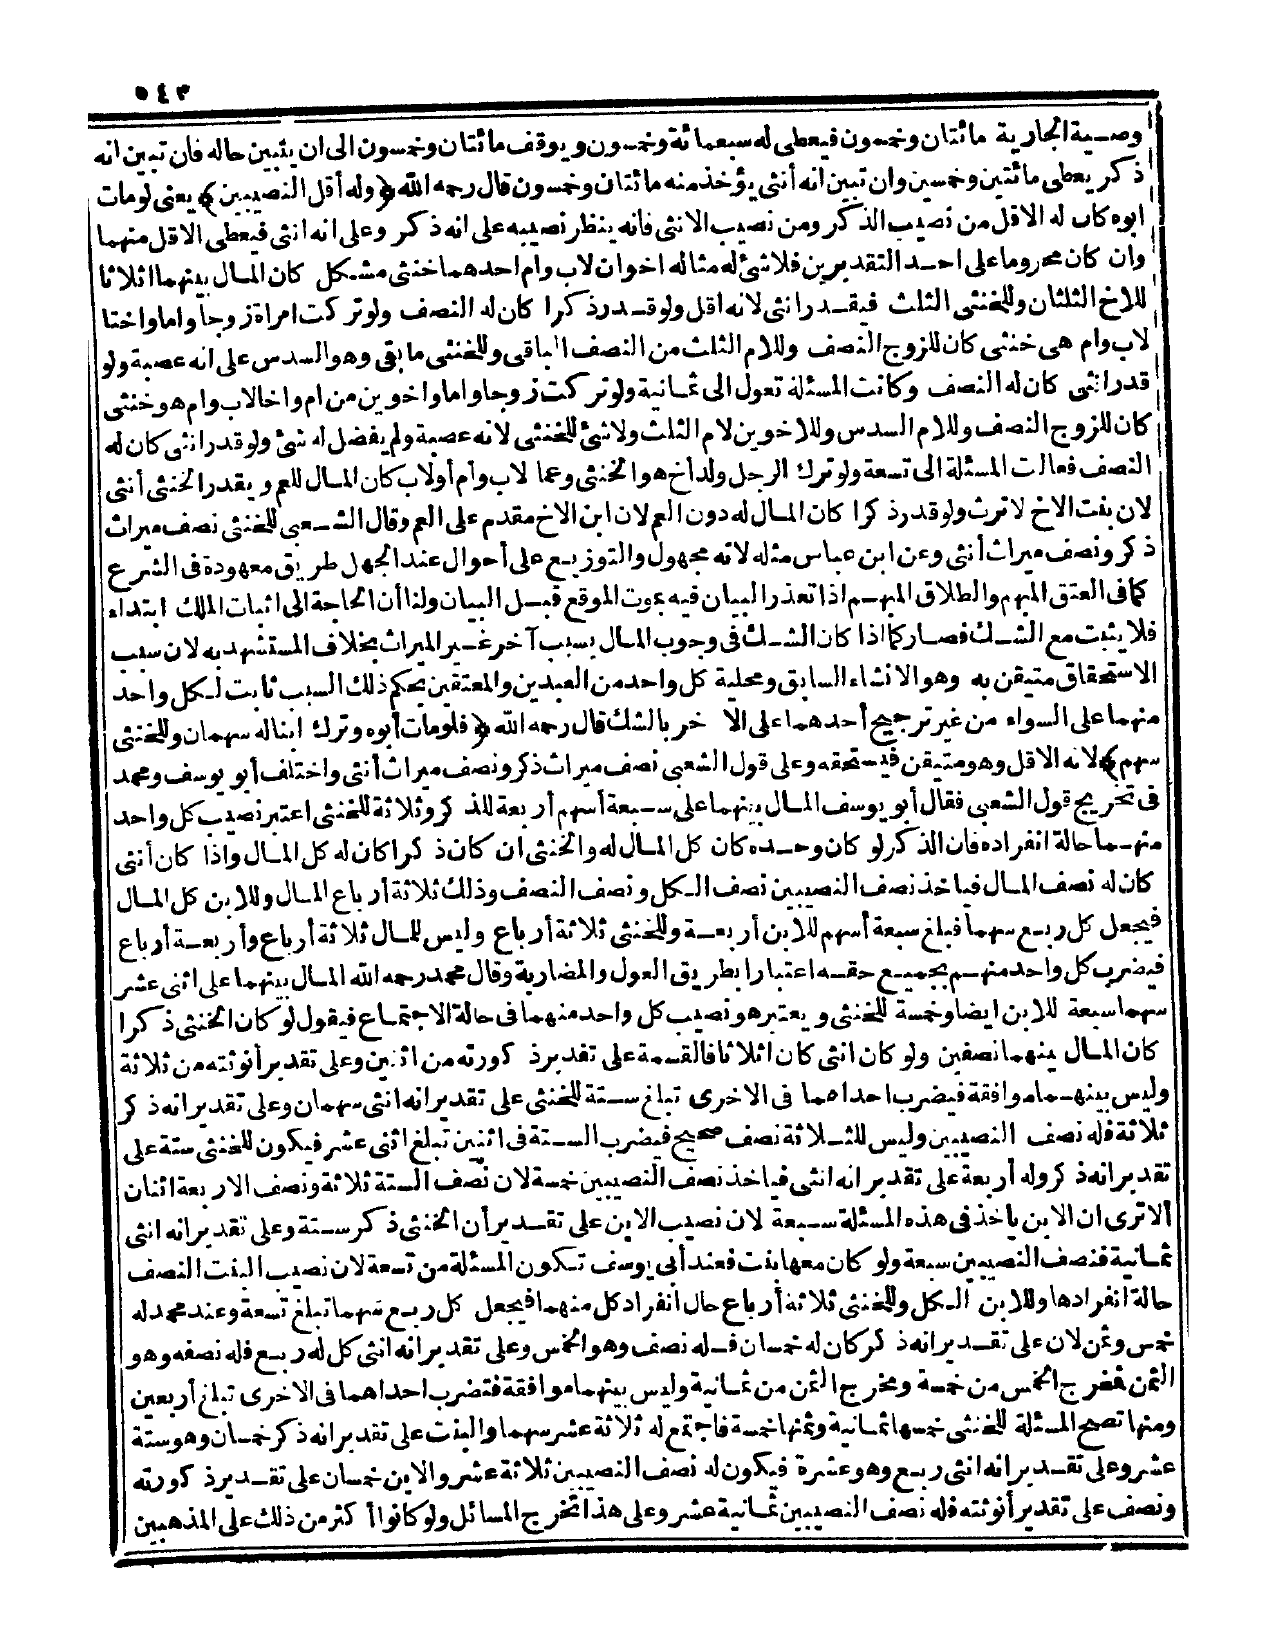 ٥٤٣
وصية الجارية مائتان وخمسون فيعطى له سبعمائة وخمسون ويوقف مائتان وخمسون الى ان يتبين حاله فان تبين انه
ذكر يعطى مائتين وخمسين وان تبين انه أنثى يؤخذ منه مائتان وخمسون قال رحمه الله ﴿وله أقل النصيبين﴾ يعنى لو مات
ابوه كان له الاقل من نصيب الذكر ومن نصيب الانثى فانه ينظر نصيبه على انه ذكر وعلى انه انثى فيعطى الاقل منهما
وان كان محروما على احد التقديرين فلا شئ له مثاله اخوان لاب وام احدهما خنثى مشكل كان المال بينهما اثلاثا
للاخ الثلثان وللخنثى الثلث فيقدر انثى لانه اقل ولو قدر ذكرا كان له النصف ولو تركت امرأة زوجا واما واختا
لاب وام هى خنثى كان للزوج النصف وللام الثلث من النصف الباقى وللخنثى ما بقى وهو السدس على انه عصبة ولو
قدر انثى كان له النصف وكانت المسئلة تعول الى ثمانية ولو تركت زوجا واما واخوين من ام واخا لاب وام هو خنثى
كان للزوج النصف وللام السدس وللاخوين لام الثلث ولا شئ للخنثى لانه عصبة ولم يفضل له شئ ولو قدر انثى كان له
النصف فعالت المسئلة الى تسعة ولو ترك الرجل ولد أخ هو الخنثى وعما لاب وأم أو لاب كان المال للعم ويقدر الخنثى أنثى
لان بنت الاخ لا ترث ولو قدر ذكرا كان المال له دون العم لان ابن الاخ مقدم على العم وقال الشعبى للخنثى نصف ميراث
ذكر ونصف ميراث أنثى وعن ابن عباس مثله لانه مجهول والتوزيع على أحوال عند الجهل طريق معهودة فى الشرع
كما فى العتق المبهم والطلاق المبهم اذا تعذر البيان فيه بموت الموقع قبل البيان ولنا أن الحاجة الى اثبات الملك ابتداء
فلا يثبت مع الشك فصار كما اذا كان الشك فى وجوب المال بسبب آخر غير الميراث بخلاف المستشهد به لان سبب
الاستحقاق متيقن به وهو الانشاء السابق ومحلية كل واحد من العبدين والمعتقين بحكم ذلك السبب ثابت لكل واحد
منهما على السواء من غير ترجيح أحدهما على الا خر بالشك قال رحمه الله ﴿فلو مات أبوه وترك ابنا له سهمان وللخنثى
سهم﴾ لانه الاقل وهو متيقن فيستحقه وعلى قول الشعبى نصف ميراث ذكر ونصف ميراث أنثى واختلف أبو يوسف ومحمد
فى تخريج قول الشعبى فقال أبو يوسف المال بينهما على سبعة أسهم أربعة للذكر وثلاثة للخنثى اعتبر نصيب كل واحد
منهما حالة انفراده فان الذكر لو كان وحده كان كل المال له والخنثى ان كان ذكرا كان له كل المال واذا كان أنثى
كان له نصف المال فيأخذ نصف النصيبين نصف الكل ونصف النصف وذلك ثلاثة أرباع المال وللابن كل المال
فيجعل كل ربع سهما فبلغ سبعة أسهم للابن أربعة وللخنثى ثلاثة أرباع وليس للمال ثلاثة أرباع وأربعة أرباع
فيضرب كل واحد منهم بجميع حقه اعتبارا بطريق العول والمضاربة وقال محمد رحمه الله المال بينهما على اثنى عشر
سهما سبعة للابن ايضا وخمسة للخنثى ويعتبر هو نصيب كل واحد منهما فى حالة الاجتماع فيقول لو كان الخنثى ذكرا
كان المال بينهما نصفين ولو كان انثى كان اثلاثا فالقسمة على تقدير ذكورته من اثنين وعلى تقدير أنوثته من ثلاثة
وليس بينهما موافقة فيضرب احداهما فى الاخرى تبلغ ستة للخنثى على تقدير انه انثى سهمان وعلى تقدير انه ذكر
ثلاثة فله نصف النصيبين وليس للثلاثة نصف صحيح فيضرب الستة فى اثنين تبلغ اثنى عشر فيكون للخنثى ستة على
تقدير انه ذكر وله أربعة على تقدير انه انثى فيأخذ نصف النصيبين خمسة لان نصف الستة ثلاثة ونصف الاربعة اثنان
ألا ترى ان الابن يأخذ فى هذه المسئلة سبعة لان نصيب الابن على تقدير أن الخنثى ذكر ستة وعلى تقدير انه انثى
ثمانية فنصف النصيبين سبعة ولو كان معها بنت فعند أبى يوسف تكون المسئلة من تسعة لان نصيب البنت النصف
حالة انفرادها وللابن الكل وللخنثى ثلاثة أرباع حال انفراد كل منهما فيجعل كل ربع سهما تبلغ تسعة وعند محمد له
خمس وثمن لان على تقدير انه ذكر كان له خمسان فله نصف وهو الخمس وعلى تقدير انه انثى كل له ربع فله نصفه وهو
الثمن فمخرج الخمس من خمسة ومخرج الثمن من ثمانية وليس بينهما موافقة فتضرب احداهما فى الاخرى تبلغ أربعين
ومنها تصح المسئلة للخنثى خمسها ثمانية وثمنها خمسة فاجتمع له ثلاثة عشر سهما والبنت على تقدير انه ذكر خمسان وهو ستة
عشر وعلى تقدير انه انثى ربع وهو عشرة فيكون له نصف النصيبين ثلاثة عشر والابن خمسان على تقدير ذكورته
ونصف على تقدير أنوثته فله نصف النصيبين ثمانية عشر وعلى هذا تخرج المسائل ولو كانوا أكثر من ذلك على المذهبين